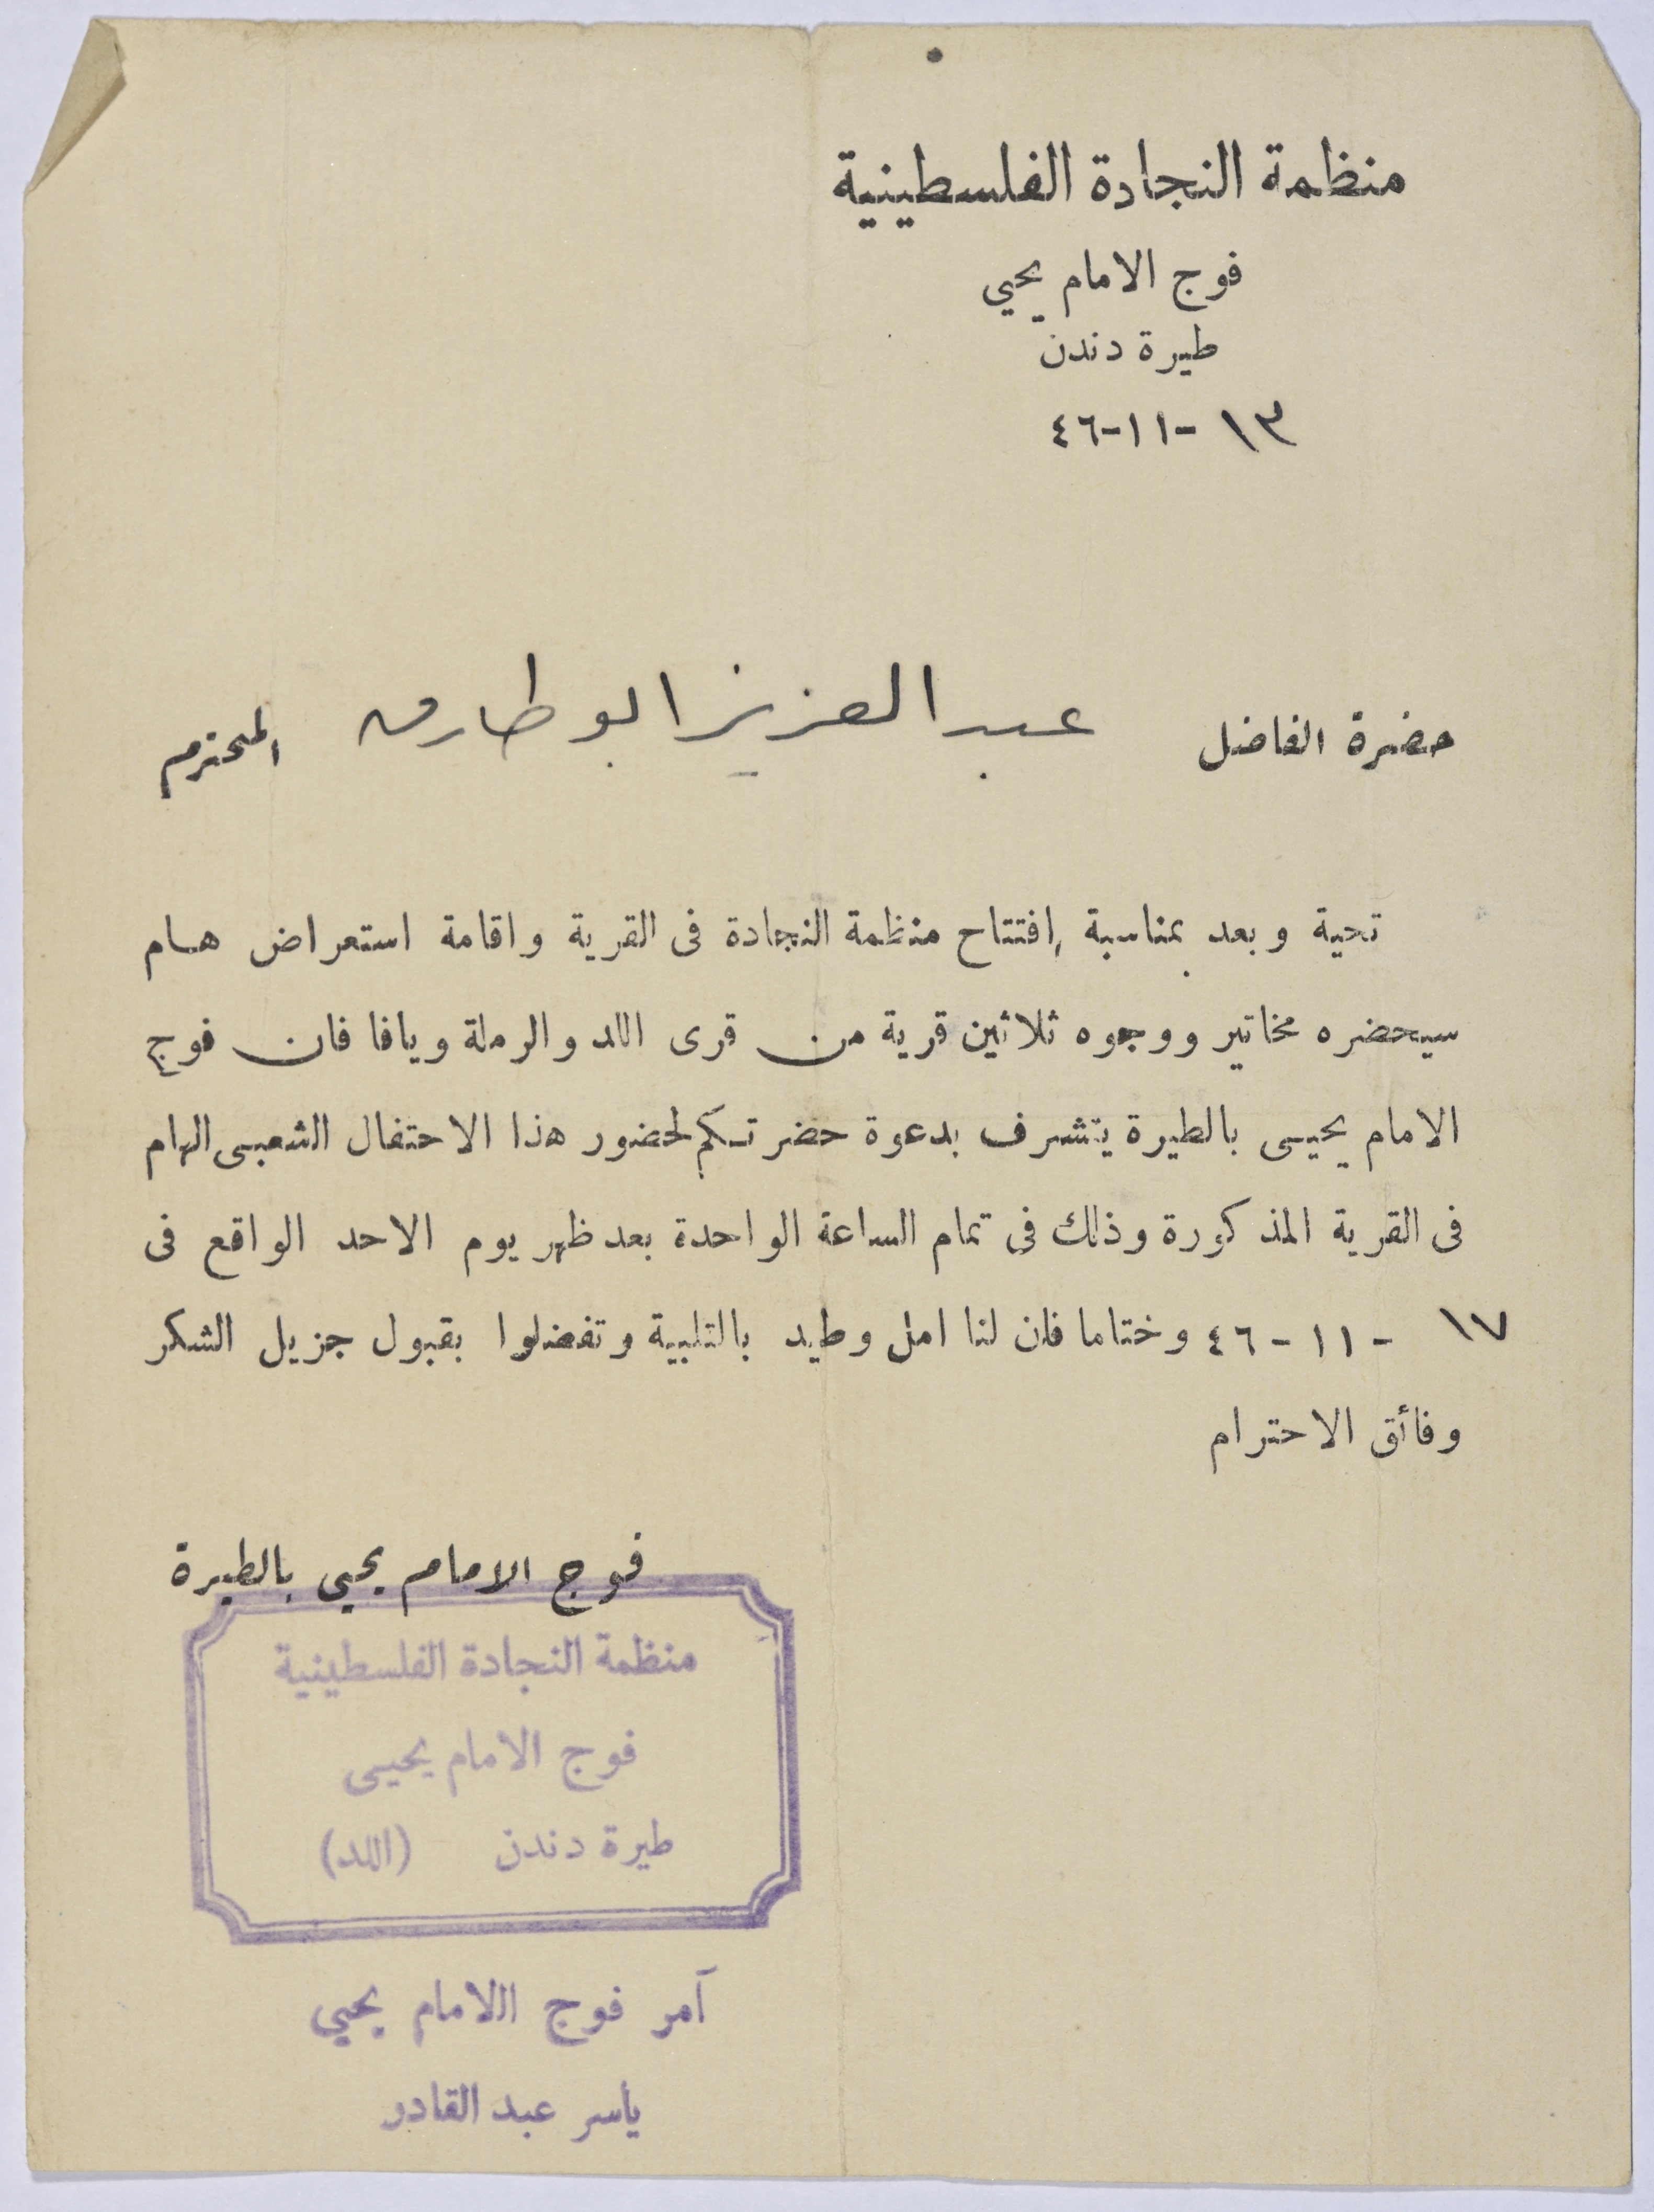 منظمة النجادة الفلسطينية
فوج الامام يحيي
طيرة دندن
١٣ -١١-٤٦
حضرة الفاضل عبد العزيز ابو طارق المحترم
تحية وبعد بمناسبة إفتتاح منظمة النجادة فى القرية واقامة استعراض هام
سيحضره مخاتير ووجوه ثلاثين قرية من قرى اللد والرملة ويافا فان فوج
الامام يحيى بالطيرة يتشرف بدعوة حضرتكم لحضور هذا الاحتفال الشعبى الهام
فى القرية المذكورة وذلك فى تمام الساعة الواحدة بعد ظهر يوم الاحد الواقع فى
١٧ -١١-٤٦ وختاما فان لنا امل وطيد بالتلبية وتفضلوا بقبول جزيل الشكر
وفائق الاحترام
فوج الامام يحيي بالطيرة
منظمة النجادة الفلسطينية
فوج الامام يحيى
طيرة دندن (اللد)
آمر فوج االامام يحيي
ياسر عبد القادر